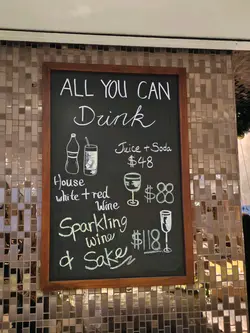 ALL YOU CAN
Drink
Juice + Soda
$48
House
white + red
Wine
$88
Sparkling
wine
& Sake
$118